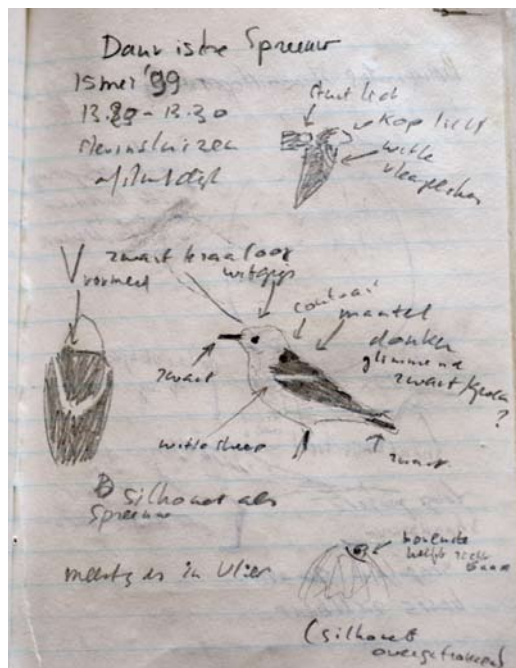 Daurische Spreeuw
15 mei '99
13.20 - 13.30
Stevinsluizen
afsluitdijk
stuit licht
kop licht
witte
vleugelstreep
V
vormeer
zwart kraaloog
witgrijs
contrast
mantel
donker
glimmend
zwart/groen
?
zwart
witte streep
zwart
silhouet als
spreeuw
meestz es in Vlier
bovenste
helft
(silhouet